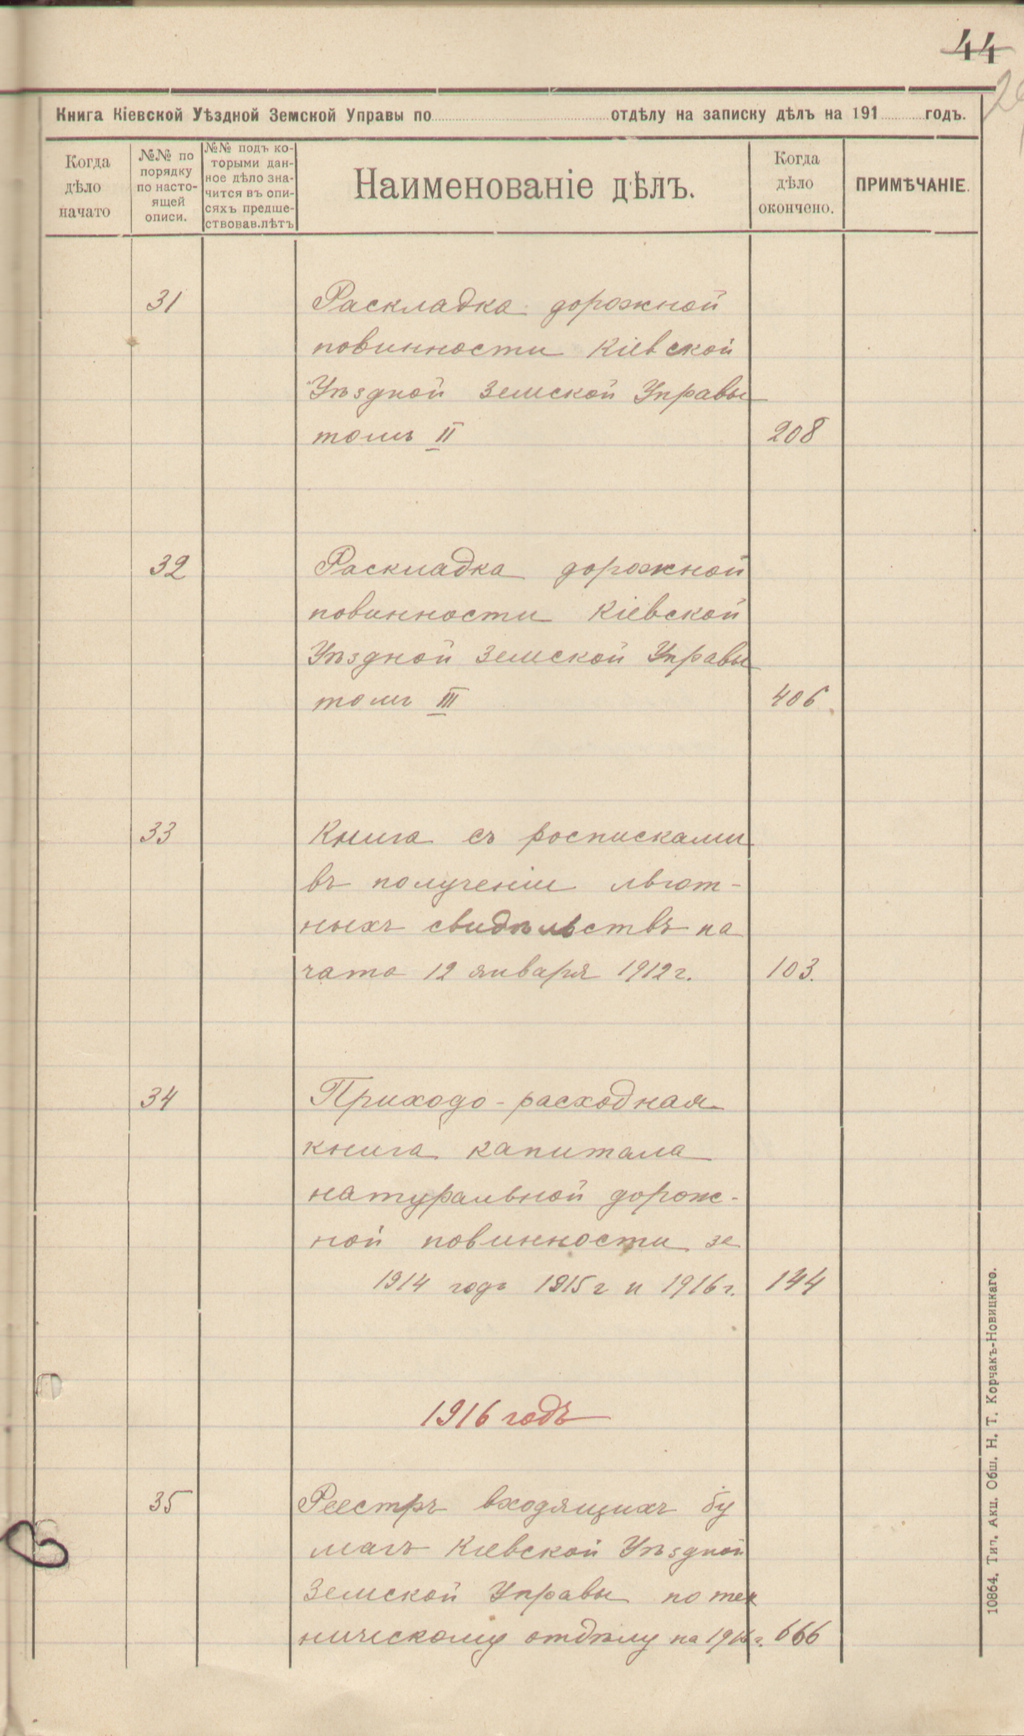 44
Книга Кіевской Уѣздной Земской Управы по отдѣлу на записку дѣлъ на 191 годъ.
Когда дѣло начато
№№ по порядку по настоящей описи.
№№ подъ которыми данное дѣло значится въ описяхъ предшествовав.лѣтъ
Наименованіе дѣлъ.
Когда дѣло окончено.
ПРИМѢЧАНІЕ.
31 Раскладка дорожной
повинности Кіевской
Уѣздной Земской Управы
томъ II 208
32 Раскладка дорожной
повинности Кіевской
Уѣздной Земской Управы
томъ III 406.
33 Книга съ росписками
въ полученіи льгот-
ныхъ свидѣльствъ на
чата 12 января 1912 г. 103.
34 Приходо-расходная
книга капитала
натуральной дорож-
ной повинности за
1914 годъ 1915 г и 1916 г. 144
1916 годъ
35 Реестръ входящихъ бу
магъ Кіевской Уѣздной
Земской Управы по тех
ническому отдѣлу на 1916 г. 666
10864. Тип. Акц. Общ. Н. Т. Корчакъ-Новицкаго.